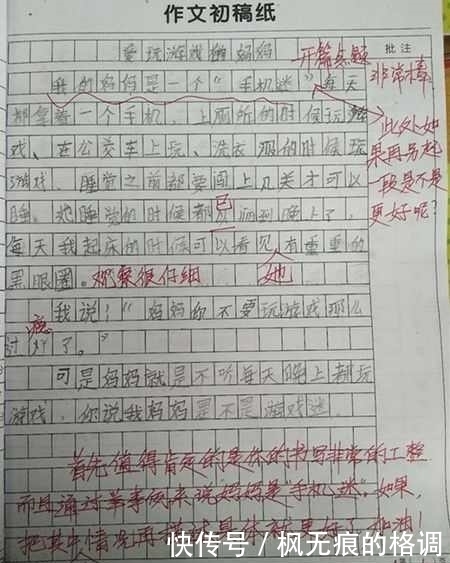 作文初稿纸
批注
爱玩游戏的妈妈
开篇点题
非常棒
我的妈妈是一个“手机迷”每天
都拿着一个手机,上厕所的时候玩游
戏、在公交车上玩、洗衣服的时候玩
游戏、睡觉之前都要闯上几关才可以
睡。她睡觉的时候都 到晚上了,
已
每天我起床的时候可以看见 有重重的
她
黑眼圈。观察很仔细
此处如
果再另起
一段是不是
更好呢?
我说:“妈妈你不要玩游戏那么
过 了。”
瘾
可是妈妈就是不听每天晚上都玩
游戏,你说我妈妈是不是游戏迷
首先值得肯定的是你的书写非常的工整
而且通过举事例来说妈妈是“手机迷”,如果,
把其中情况再描述具体就更好了,加油!
快传号/枫无痕的格调